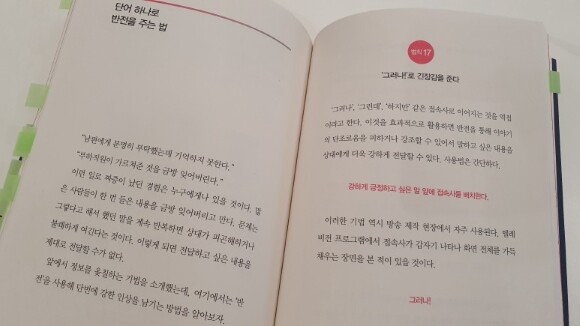 단어 하나로
반전을 주는 법
"남편에게 분명히 부탁했는데 기억하지 못한다."
"부하직원이 가르쳐준 것을 금방 잊어버린다."
이런 일로 짜증이 났던 경험은 누구에게나 있을 것이다. 많
은 사람들이 한 번 들은 내용을 금방 잊어버리고 만다. 문제는
그렇다고 해서 했던 말을 계속 반복하면 상대가 피곤해하거나
불쾌하게 여긴다는 것이다. 이렇게 되면 전달하고 싶은 내용을
제대로 전달할 수가 없다.
앞에서 정보를 옷질하는 기법을 소개했는데, 여기에서는 '반
전'을 사용해 단번에 강한 인상을 남기는 방법을 알아보자.
법칙 17
'그러나!'로 긴장감을 준다
'그러나', '그런데', '하지만' 같은 접속사로 이어지는 것을 역접
이라고 한다. 이것을 효과적으로 활용하면 반전을 통해 이야기
의 단조로움을 피하거나 강조할 수 있어서 말하고 싶은 내용을
상대에게 더욱 강하게 전달할 수 있다. 사용법은 간단하다.
강하게 긍정하고 싶은 말 앞에 접속사를 배치한다.
이러한 기법 역시 방송 제작 현장에서 자주 사용된다. 텔레
비전 프로그램에서 접속사가 갑자기 나타나 화면 전체를 가득
채우는 장면을 본 적이 있을 것이다.
그러나!